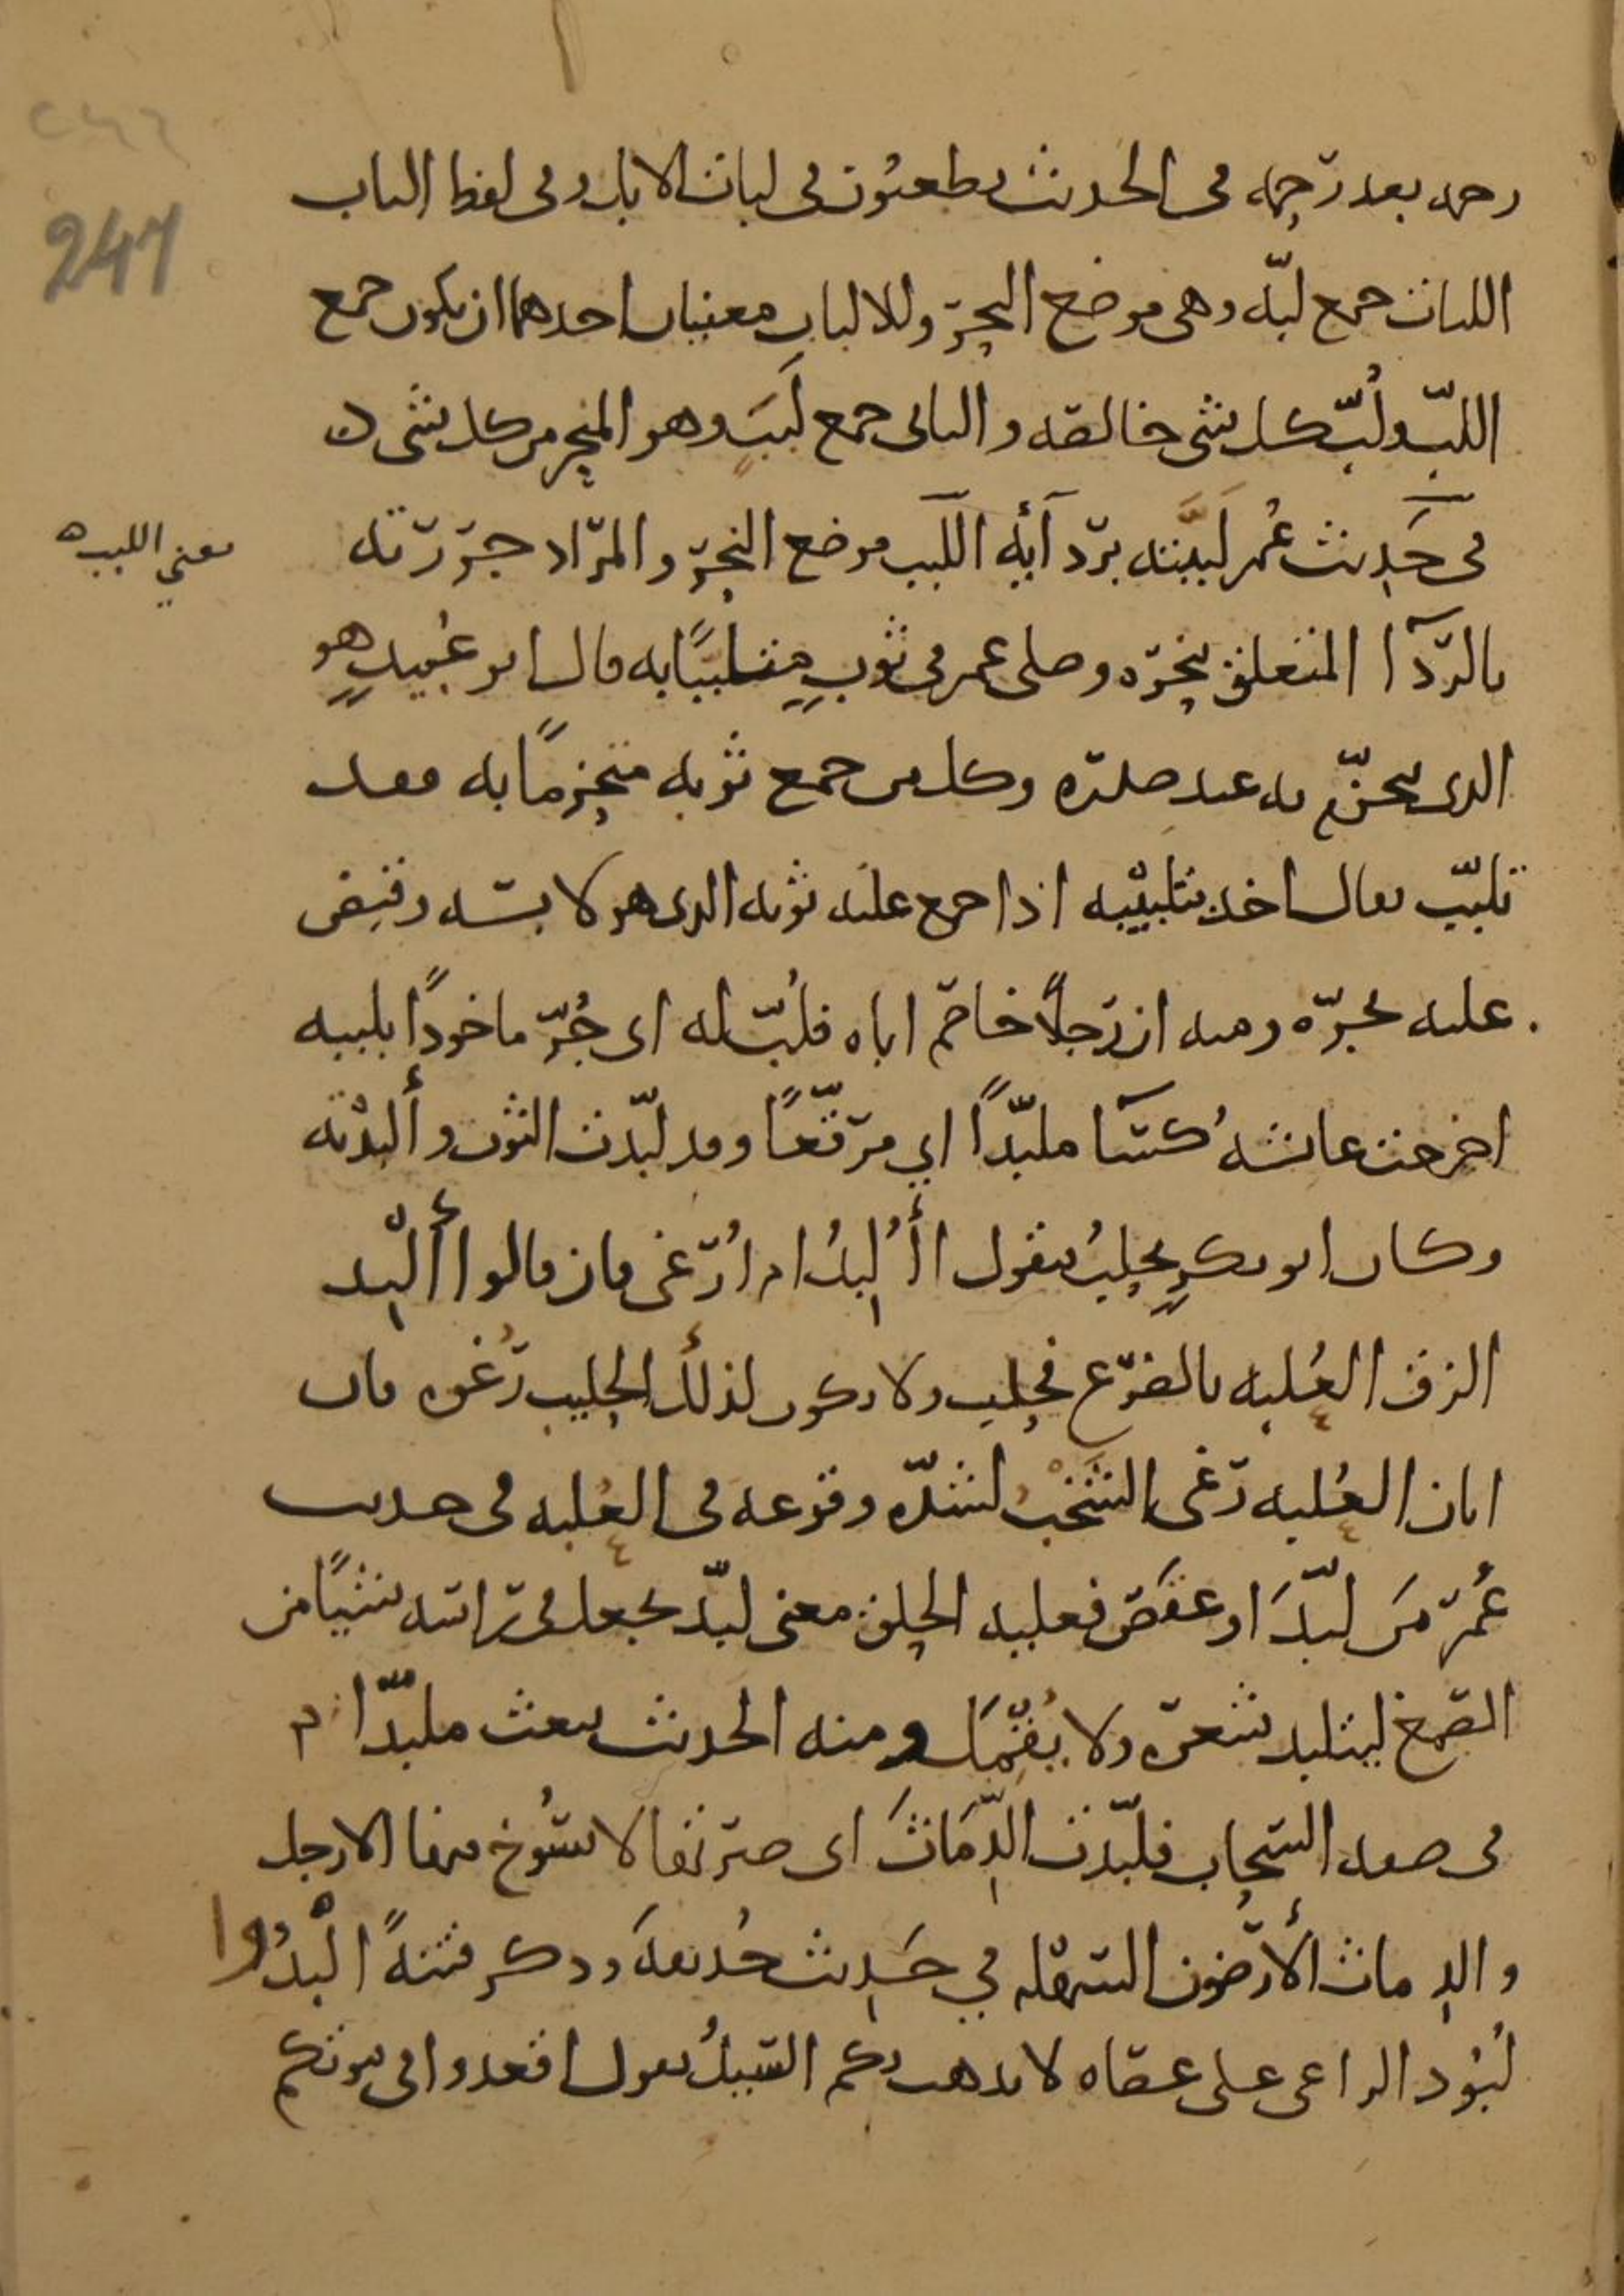 247
رحمه بعد رحمه في الحديث يطعنون في لبات الابل وفي لفظ الباب
اللبات جمع لبّه وهي موضع النحر وللالباب معنيان احدهما ان يكون جمع
اللبّ ولُبّ كل شي خالصه والثاني جمع لَبَب وهو المنحر من كل شي
في حَديث عُمر لَبَبته بردآيه اللبب موضع النحر والمراد جررته
معني اللبب
بالردآ المتعلق بنحره وصلى عمر في ثوبٍ متلببًا به قال ابو عُبيدٍ هو
الذي تحزّم به عند صدره وكل من جمع ثوبه متحزمًا به فقد
تلبّب يقال اخذ بتلبيبه اذا جمع عليه ثوبه الذي هو لابسه وقبض
عليه بجره ومنه ان رجلاً خاصم اباه فلُبّ له اي جُرّ ماخوذًا بلببه
اخرجت عائشهُ كسآ ملبّدًا اي مرقّعًا وقد لبّدت الثوب وأَلبدْته
وكان ابو بكرٍ يحلبُ فيقول اأُلبدُ ام اُرغي فان قالوا أَلبد
الزق العُلبه بالضرع فحلب ولا يكون لذلك الحليب رُغوه فان
ابان العُلبه رغى الشخْبُ لشدّه وقوعه في العُلبه في حديث
عُمر مَن لبّدَ او عقص فعليه الحلق معنى لبّد يجعل في راسه شيًا من
الصمغ ليتلبد شعره ولا يُقمّل ومنه الحديث يبعث ملبّدًا
في صفه السحاب فلبّدت الدّمَاثَ اي صيرتها لا تسُوخ فيها الارجل
والدِماث الأَرضون السهله في حَديث حُذيفهَ وذكر فتنهً الْبدُوا
لُبُود الراعي على عصاه لا يذهب بكم السيلُ يقول اقعدوا في بيوتكم